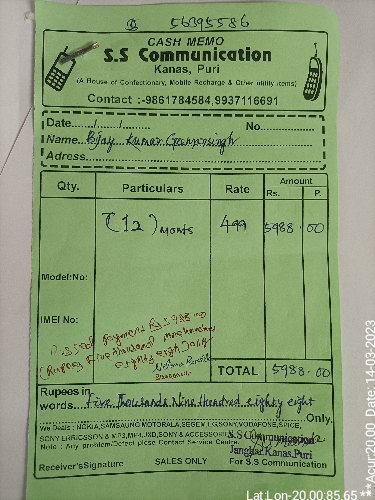 56395586
CASH MEMO
S.S Communication
Kanas, Puri
(A House of Confectionary, Mobile Recharge & Other utility items)
Contact :-9861784584,9937116691
Date...../...../..... No.....
Name Bijay Kumar
Adress
Qty. Particulars Rate Amount
Rs. P.
(12) monts 499 5988.00
Model:No:
IMEI No:
payment Rs 5988.00
(Rupees Five thousand
eighty eight) only
TOTAL 5988.00
Rupees in
words Five Thousands Nine Hundred eighty eight
Only.
We Deals : NOKIA,SAMSAUNG MOTORALA,SEGEM,LG,SONY,VODAFONE,SPICE,
SONY ERRICSSON & MP3,MP4,UXD,SONY & ACCESSORIES
Note : Any problom/Defect plese Contact Service Centre.
S.S Communication
Janghar Kanas,Puri
Receiver'sSignature SALES ONLY For S.S Communication
Lat:Lon-20.00:85.65 **
**Acur:20.00 Date:14-03-2023